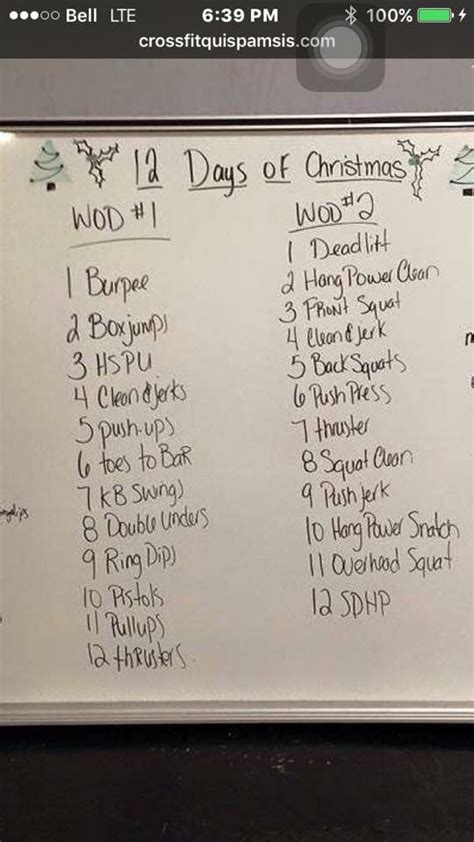 Bell LTE 6:39 PM 100%
crossfitquispamsis.com
12 Days of Christmas
WOD #1
1 Burpee
2 Box jumps
3 HSPU
4 Clean & jerks
5 push-ups
6 toes to BaR
7 KB Swings
8 Double unders
9 Ring Dips
10 Pistols
11 Pullups
12 thrusters
WOD #2
1 Deadlift
2 Hang Power Clean
3 FRont Squat
4 Clean & jerk
5 Back Squats
6 Push Press
7 thruster
8 Squat Clean
9 Push jerk
10 Hang Power Snatch
11 Overhead Squat
12 SDHP